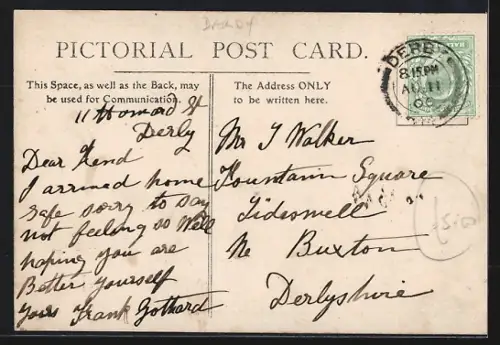 PICTORIAL POST CARD.
This Space, as well as the Back, may
be used for Communication.
The Address ONLY
to be written here.
DERBY
8.15PM
AU 11
11 Howard St
Derby
Dear Frend
I arrived home
safe sorry to say
not feeling so well
hoping you are
Better yourself
Yours Frank Gothard
Mr J Walker
Fountain Square
Tideswell
Nr Buxton
Derbyshire